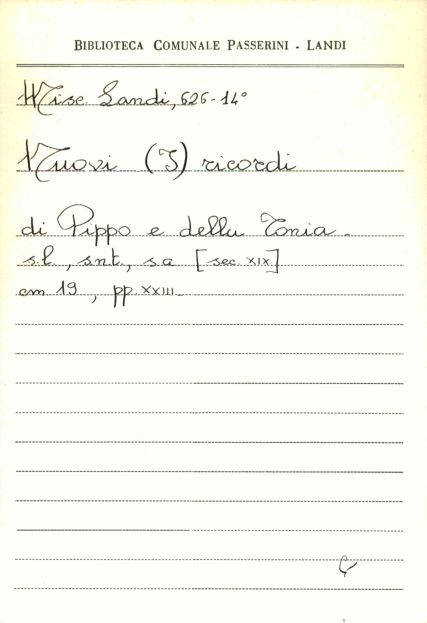 BIBLIOTECA COMUNALE PASSERINI - LANDI
Misc. Landi, 626-14°
Nuovi (I) ricordi
di Pippo e della Tonia.
s.l., snt., sa [sec. XIX]
cm 19, pp. XXIII